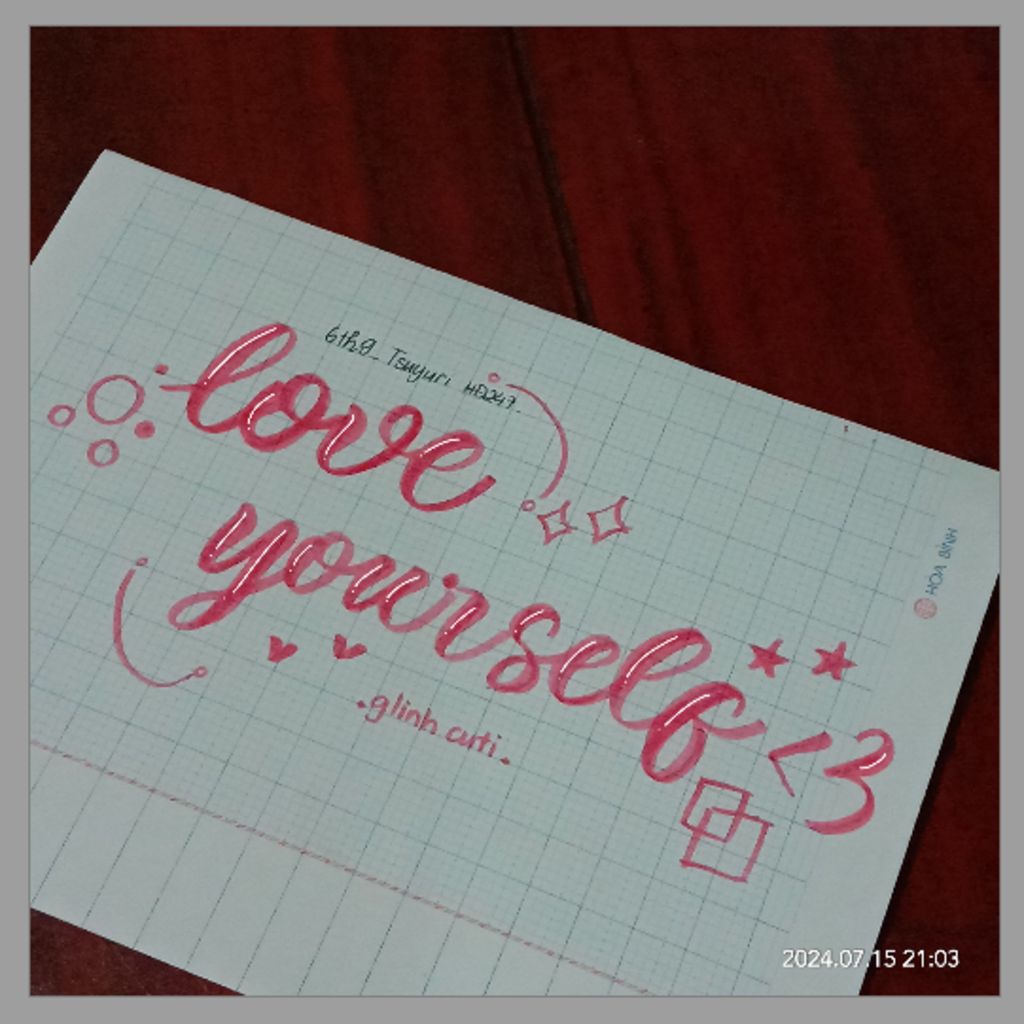 6th9_ Tsuyuri HD247.
love
yourself <3
.glinh cuti.
HOA BÌNH
2024.07.15 21:03